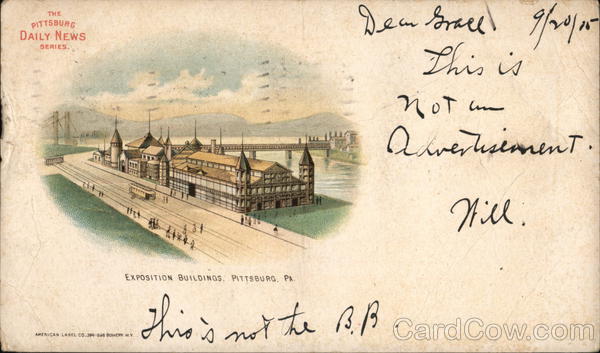 THE
PITTSBURG
DAILY NEWS
SERIES.
Dear Grace. 9/20/05
This is
Not an
Advertisement.
Will.
EXPOSITION BUILDINGS, PITTSBURG, PA.
AMERICAN LABEL CO., BOWERY N.Y.
This is not the B.B.
CardCow.com